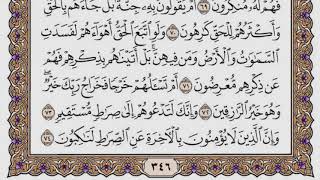 فَهُمْ لَهُۥ مُنكِرُونَ ٦٩ أَمْ يَقُولُونَ بِهِۦ جِنَّةٌۢ بَلْ جَآءَهُم بِٱلْحَقِّ
وَأَكْثَرُهُمْ لِلْحَقِّ كَـٰرِهُونَ ٧٠ وَلَوِ ٱتَّبَعَ ٱلْحَقُّ أَهْوَآءَهُمْ لَفَسَدَتِ
ٱلسَّمَـٰوَٰتُ وَٱلْأَرْضُ وَمَن فِيهِنَّ ۚ بَلْ أَتَيْنَـٰهُم بِذِكْرِهِمْ فَهُمْ
عَن ذِكْرِهِم مُّعْرِضُونَ ٧١ أَمْ تَسْـَٔلُهُمْ خَرْجًا فَخَرَاجُ رَبِّكَ خَيْرٌ ۖ
وَهُوَ خَيْرُ ٱلرَّٰزِقِينَ ٧٢ وَإِنَّكَ لَتَدْعُوهُمْ إِلَىٰ صِرَٰطٍ مُّسْتَقِيمٍ ٧٣
وَإِنَّ ٱلَّذِينَ لَا يُؤْمِنُونَ بِٱلْـَٔاخِرَةِ عَنِ ٱلصِّرَٰطِ لَنَـٰكِبُونَ ٧٤
٣٤٦